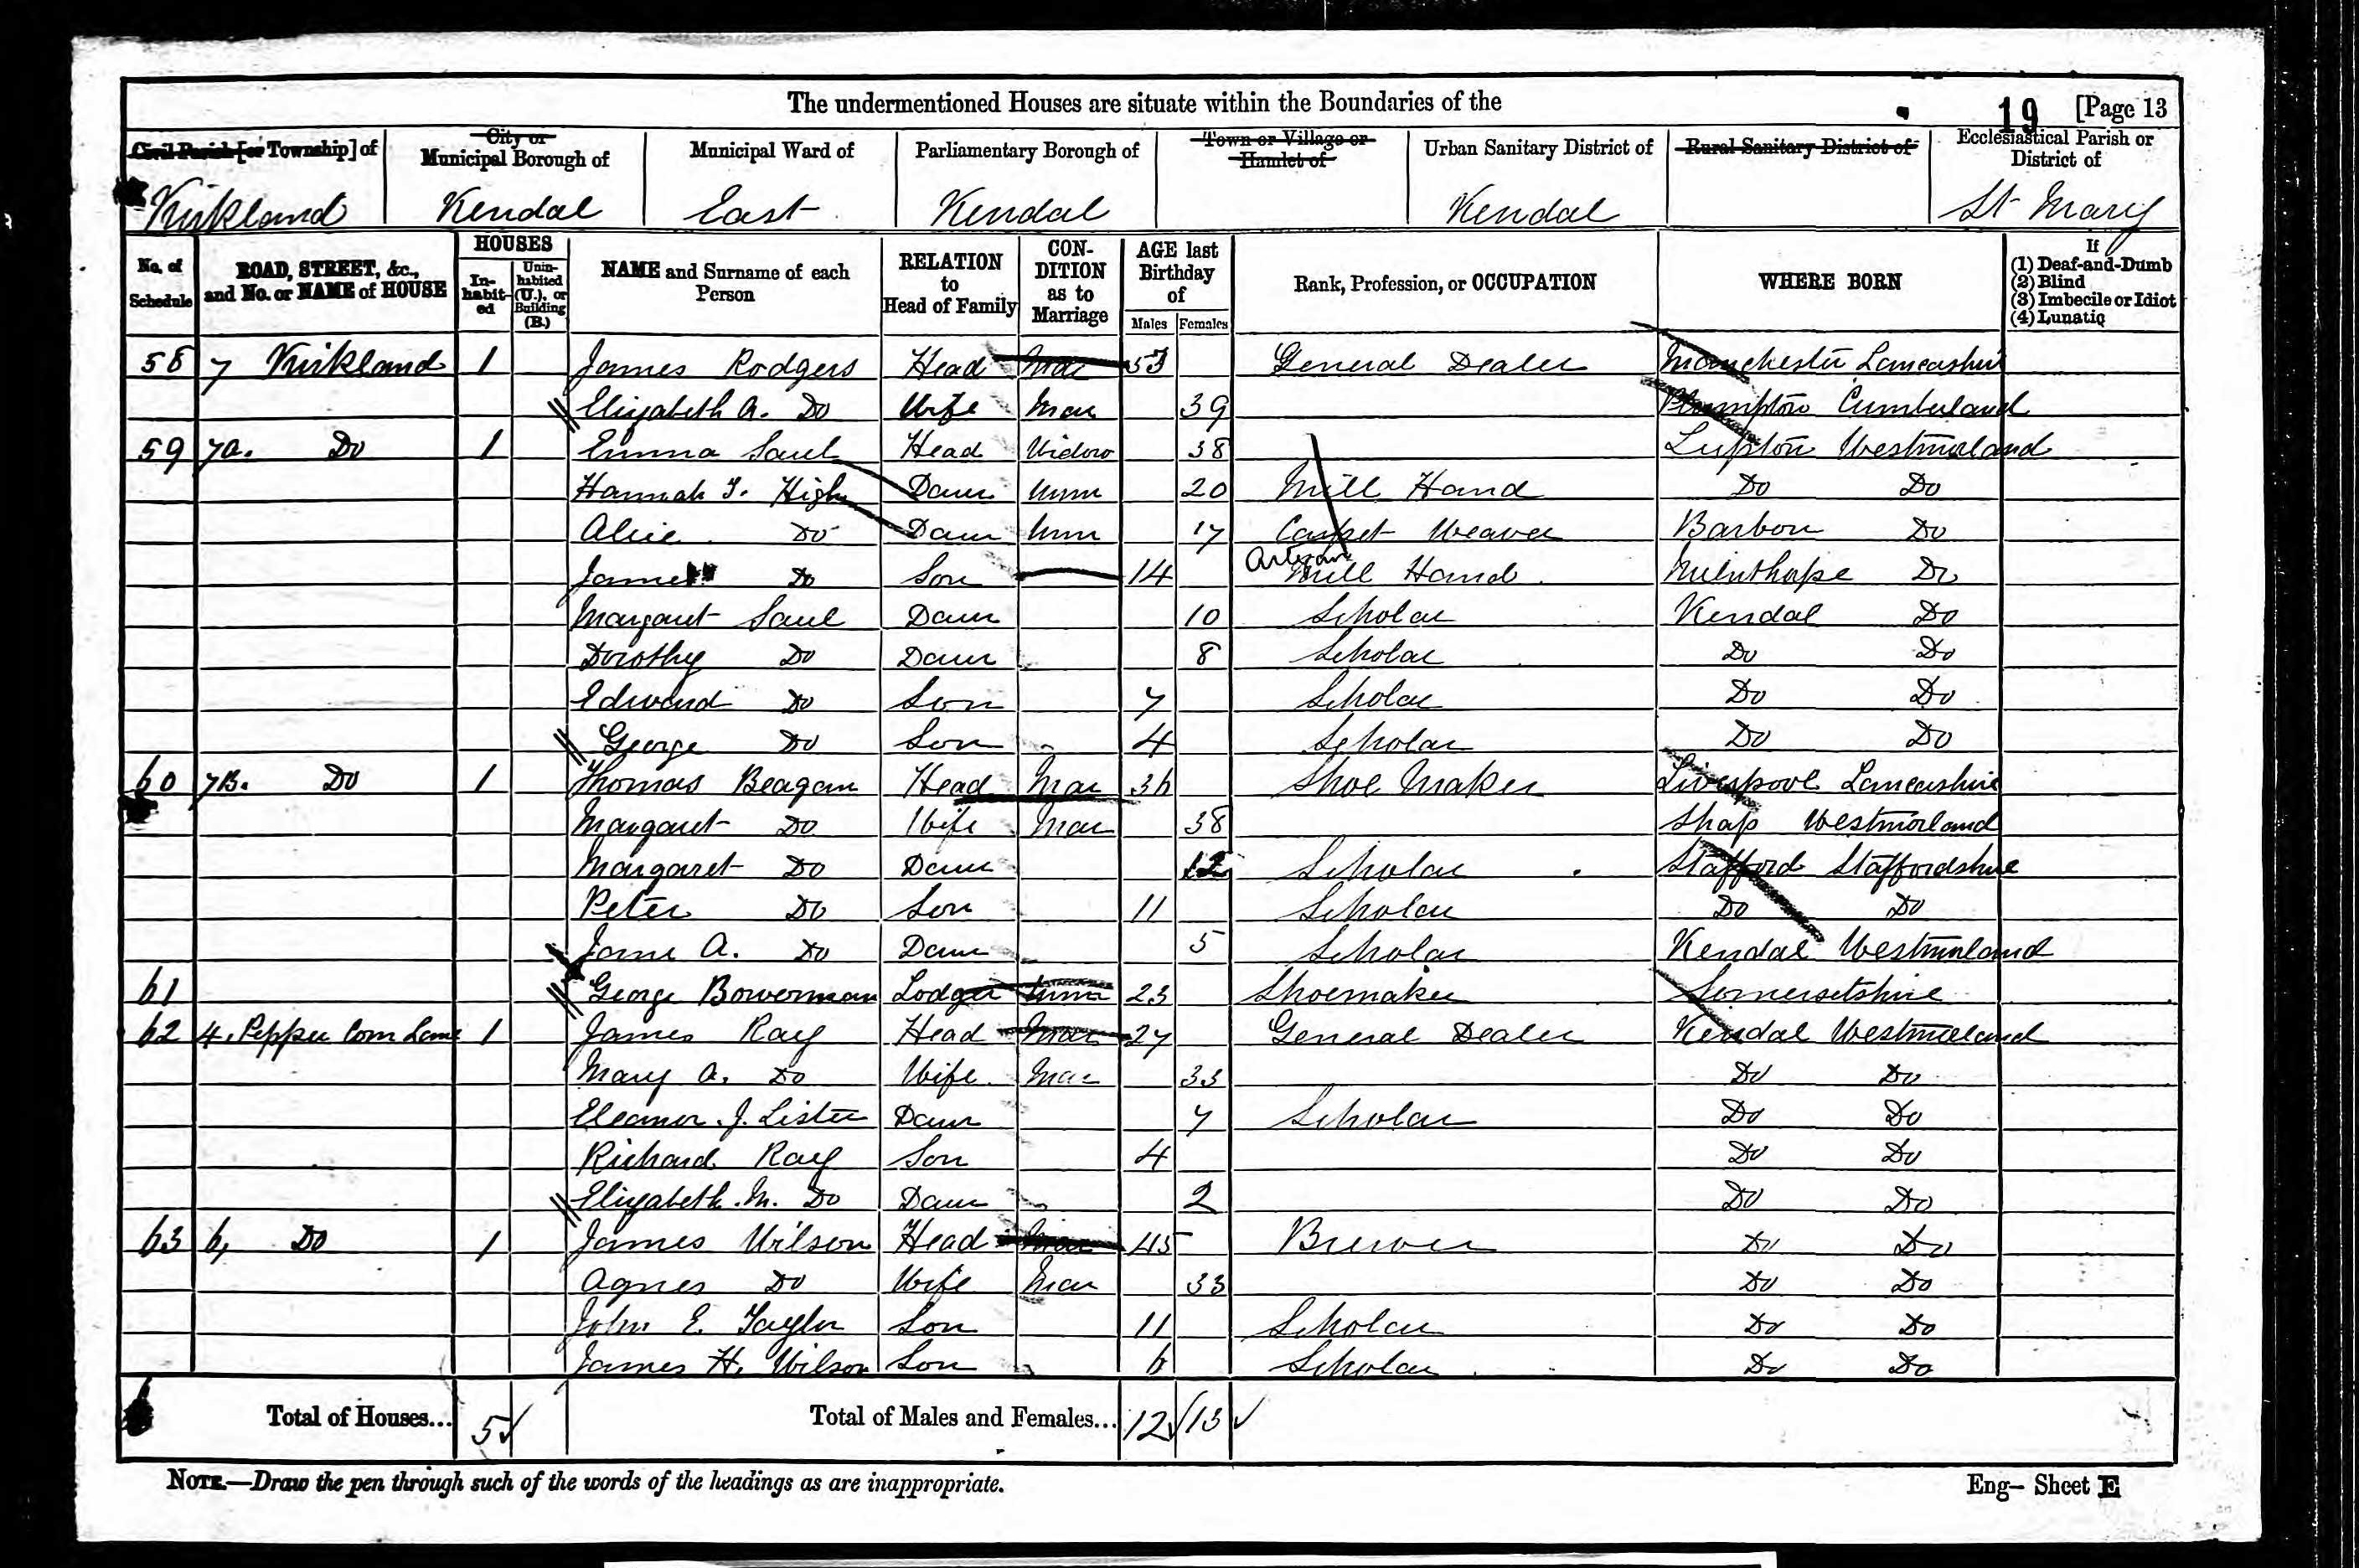 The undermentioned Houses are situate within the Boundaries of the
19 [Page 13
Civil Parish [or Township] of
City or Municipal Borough of
Municipal Ward of
Parliamentary Borough of
Town or Village or Hamlet of
Urban Sanitary District of
Rural Sanitary District of
Ecclesiastical Parish or District of
Kirkland Kendal East Kendal Kendal St Mary
No. of Schedule
ROAD, STREET, &c., and No. or NAME of HOUSE
HOUSES
In-habit-ed
Unin-habited (U.), or Building (B.)
NAME and Surname of each Person
RELATION to Head of Family
CON-DITION as to Marriage
AGE last Birthday of
Males Females
Rank, Profession, or OCCUPATION
WHERE BORN
If
(1) Deaf-and-Dumb
(2) Blind
(3) Imbecile or Idiot
(4) Lunatic
58 7 Kirkland 1 James Rodgers Head Mar 53 General Dealer Manchester Lancashire
Elizabeth A. Do Wife Mar 39 Plumpton Cumberland
59 7a. Do 1 Emma Saul Head Widow 38 Lupton Westmorland
Hannah T. High Daur Unm 20 Mill Hand Do Do
Alice Do Daur Unm 17 Carpet Weaver Barbon Do
James Do Son 14 Artizan Mill Hand Milnthorpe Do
Margaret Saul Daur 10 Scholar Kendal Do
Dorothy Do Daur 8 Scholar Do Do
Edward Do Son 7 Scholar Do Do
George Do Son 4 Scholar Do Do
60 7B. Do 1 Thomas Beagan Head Mar 36 Shoe Maker Liverpool Lancashire
Margaret Do Wife Mar 38 Shap Westmorland
Margaret Do Daur 12 Scholar Stafford Staffordshire
Peter Do Son 11 Scholar Do Do
Jane A. Do Daur 5 Scholar Kendal Westmorland
61 George Bowerman Lodger Unm 23 Shoemaker Somersetshire
62 4, Pepper Corn Lane 1 James Ray Head Mar 27 General Dealer Kendal Westmorland
Mary A. Do Wife Mar 33 Do Do
Eleanor J. Lister Daur 7 Scholar Do Do
Richard Ray Son 4 Do Do
Elizabeth M. Do Daur 2 Do Do
63 6, Do 1 James Wilson Head Mar 45 Brewer Do Do
Agnes Do Wife Mar 33 Do Do
John E. Taylor Son 11 Scholar Do Do
James H. Wilson Son 6 Scholar Do Do
Total of Houses... 5 Total of Males and Females... 12 13
NOTE.—Draw the pen through such of the words of the headings as are inappropriate.
Eng– Sheet E